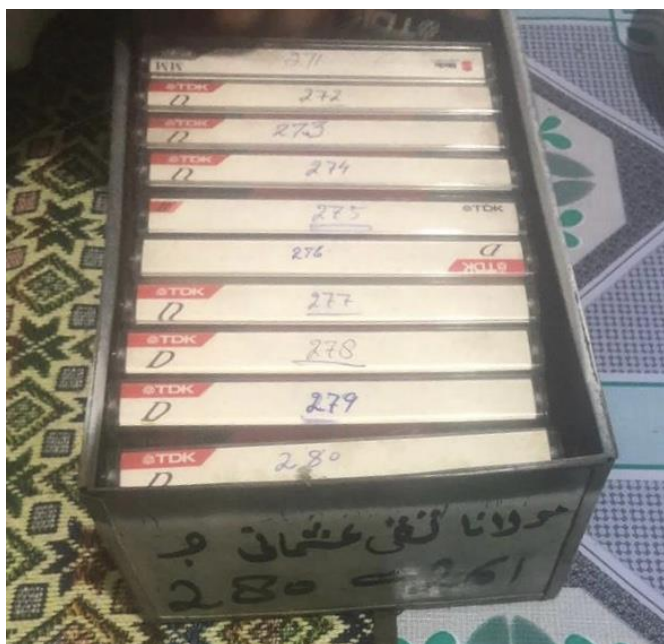 TDK
MM 271
TDK D 272
TDK D 273
TDK D 274
275 TDK
276 D TDK
TDK D 277
TDK D 278
TDK D 279
TDK D 280
مولانا تقی عثمانی
261 280